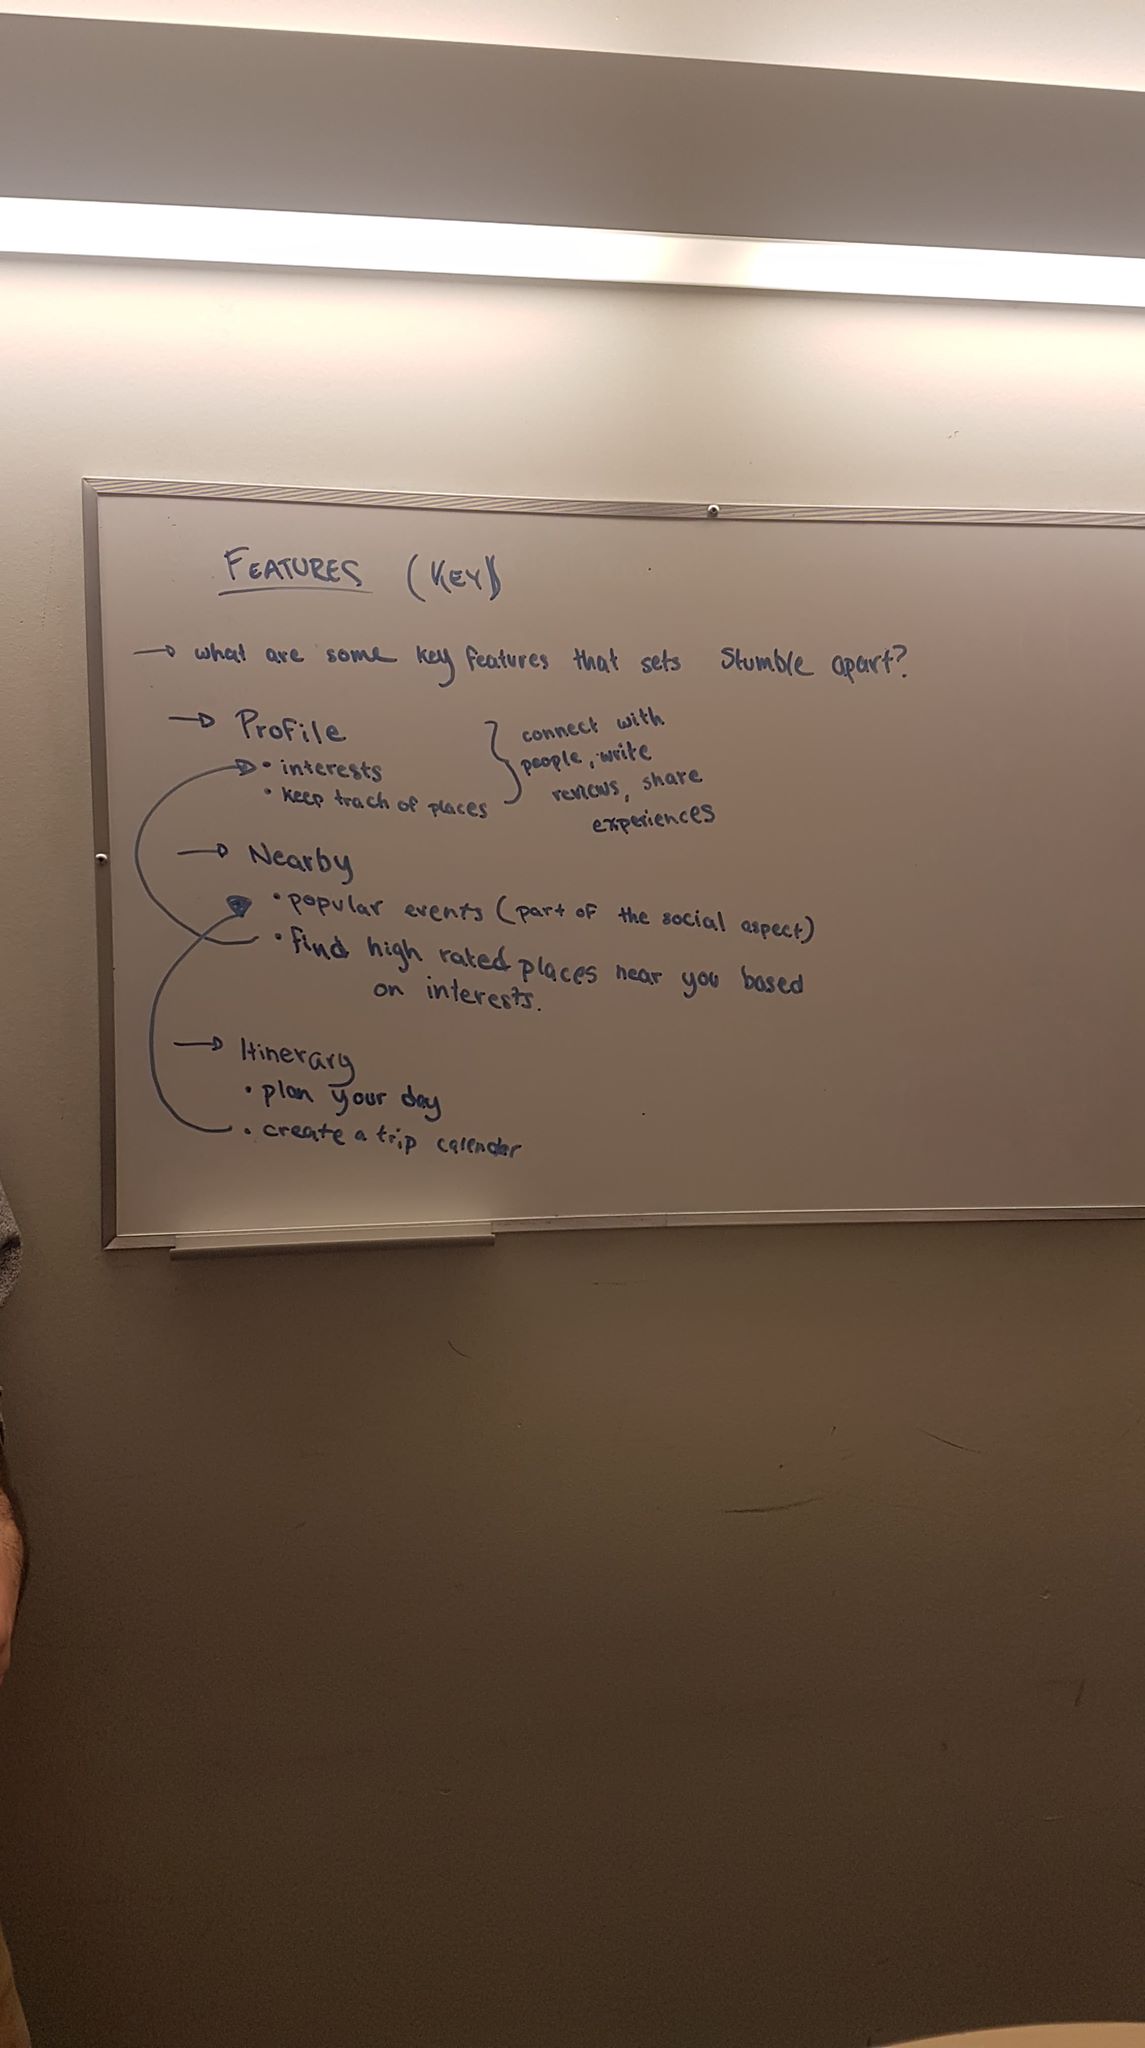 FEATURES (KEY)
→ what are some key features that sets Stumble apart?
→ Profile
• interests
• keep trach of places
connect with
people, write
reviews, share
experiences
→ Nearby
• popular events (part of the social aspect)
• find high rated places near you based
on interests.
→ Itinerary
• plan your day
• create a trip calender